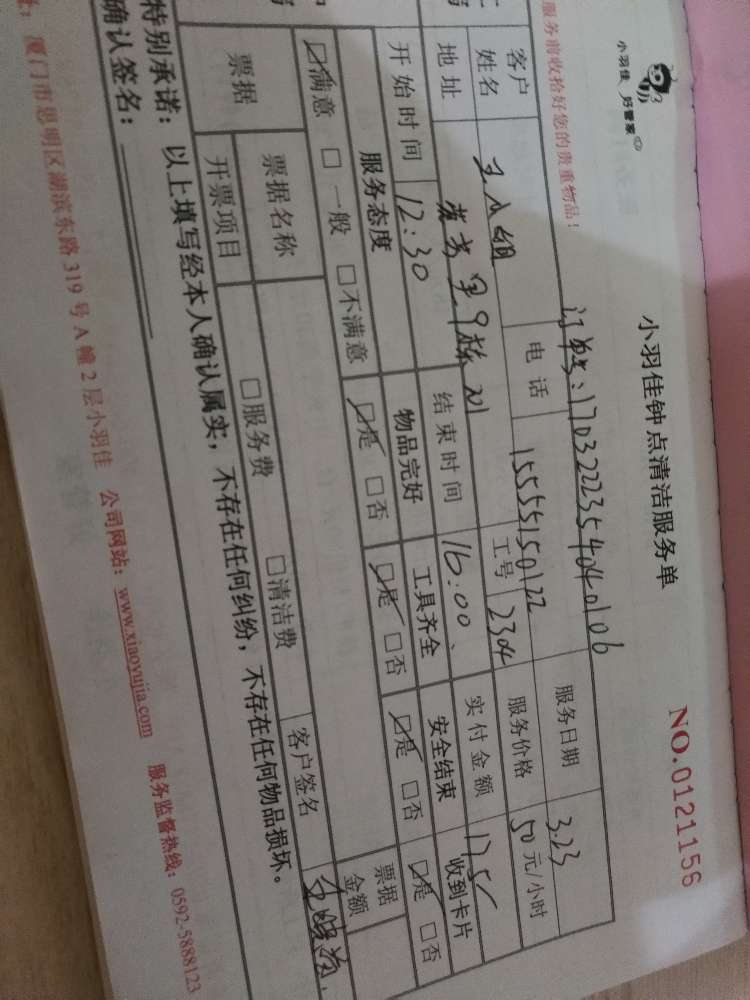 小羽佳 好管家
小羽佳钟点清洁服务单
NO.0121156
服务前收拾好您的贵重物品!
订单号:1703222354040106
客户姓名 王小姐 电话 15555150122 服务日期 3.23
地址 工号 2304 服务价格 50元/小时
开始时间 12:30 结束时间 16:00 实付金额 175
服务态度 物品完好 工具齐全 安全结束 收到卡片
☑满意 □一般 □不满意 ☑是 □否 ☑是 □否 ☑是 □否 ☑是 □否
票据 票据名称 □服务费 □清洁费 票据金额
开票项目 客户签名
特别承诺:以上填写经本人确认属实,不存在任何纠纷,不存在任何物品损坏。
确认签名:
厦门市思明区湖滨东路319号A幢2层小羽佳 公司网站:www.xiaoyujia.com 服务监督热线:0592-5888123